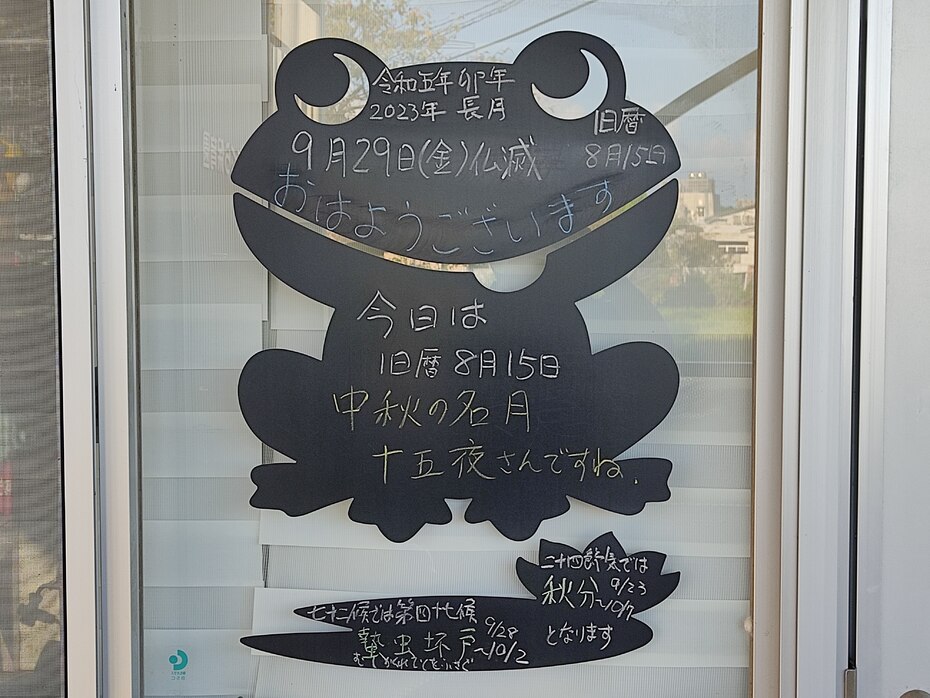 令和五年卯年
2023年 長月
旧暦
8月15日
9月29日(金)仏滅
おはようございます
今日は
旧暦8月15日
中秋の名月
十五夜さんですね.
二十四節気では
秋分 9/23
~10/7
となります
七十二候では第四十七候
蟄虫坏戸 9/28
~10/2
むしかくれてとをふさぐ